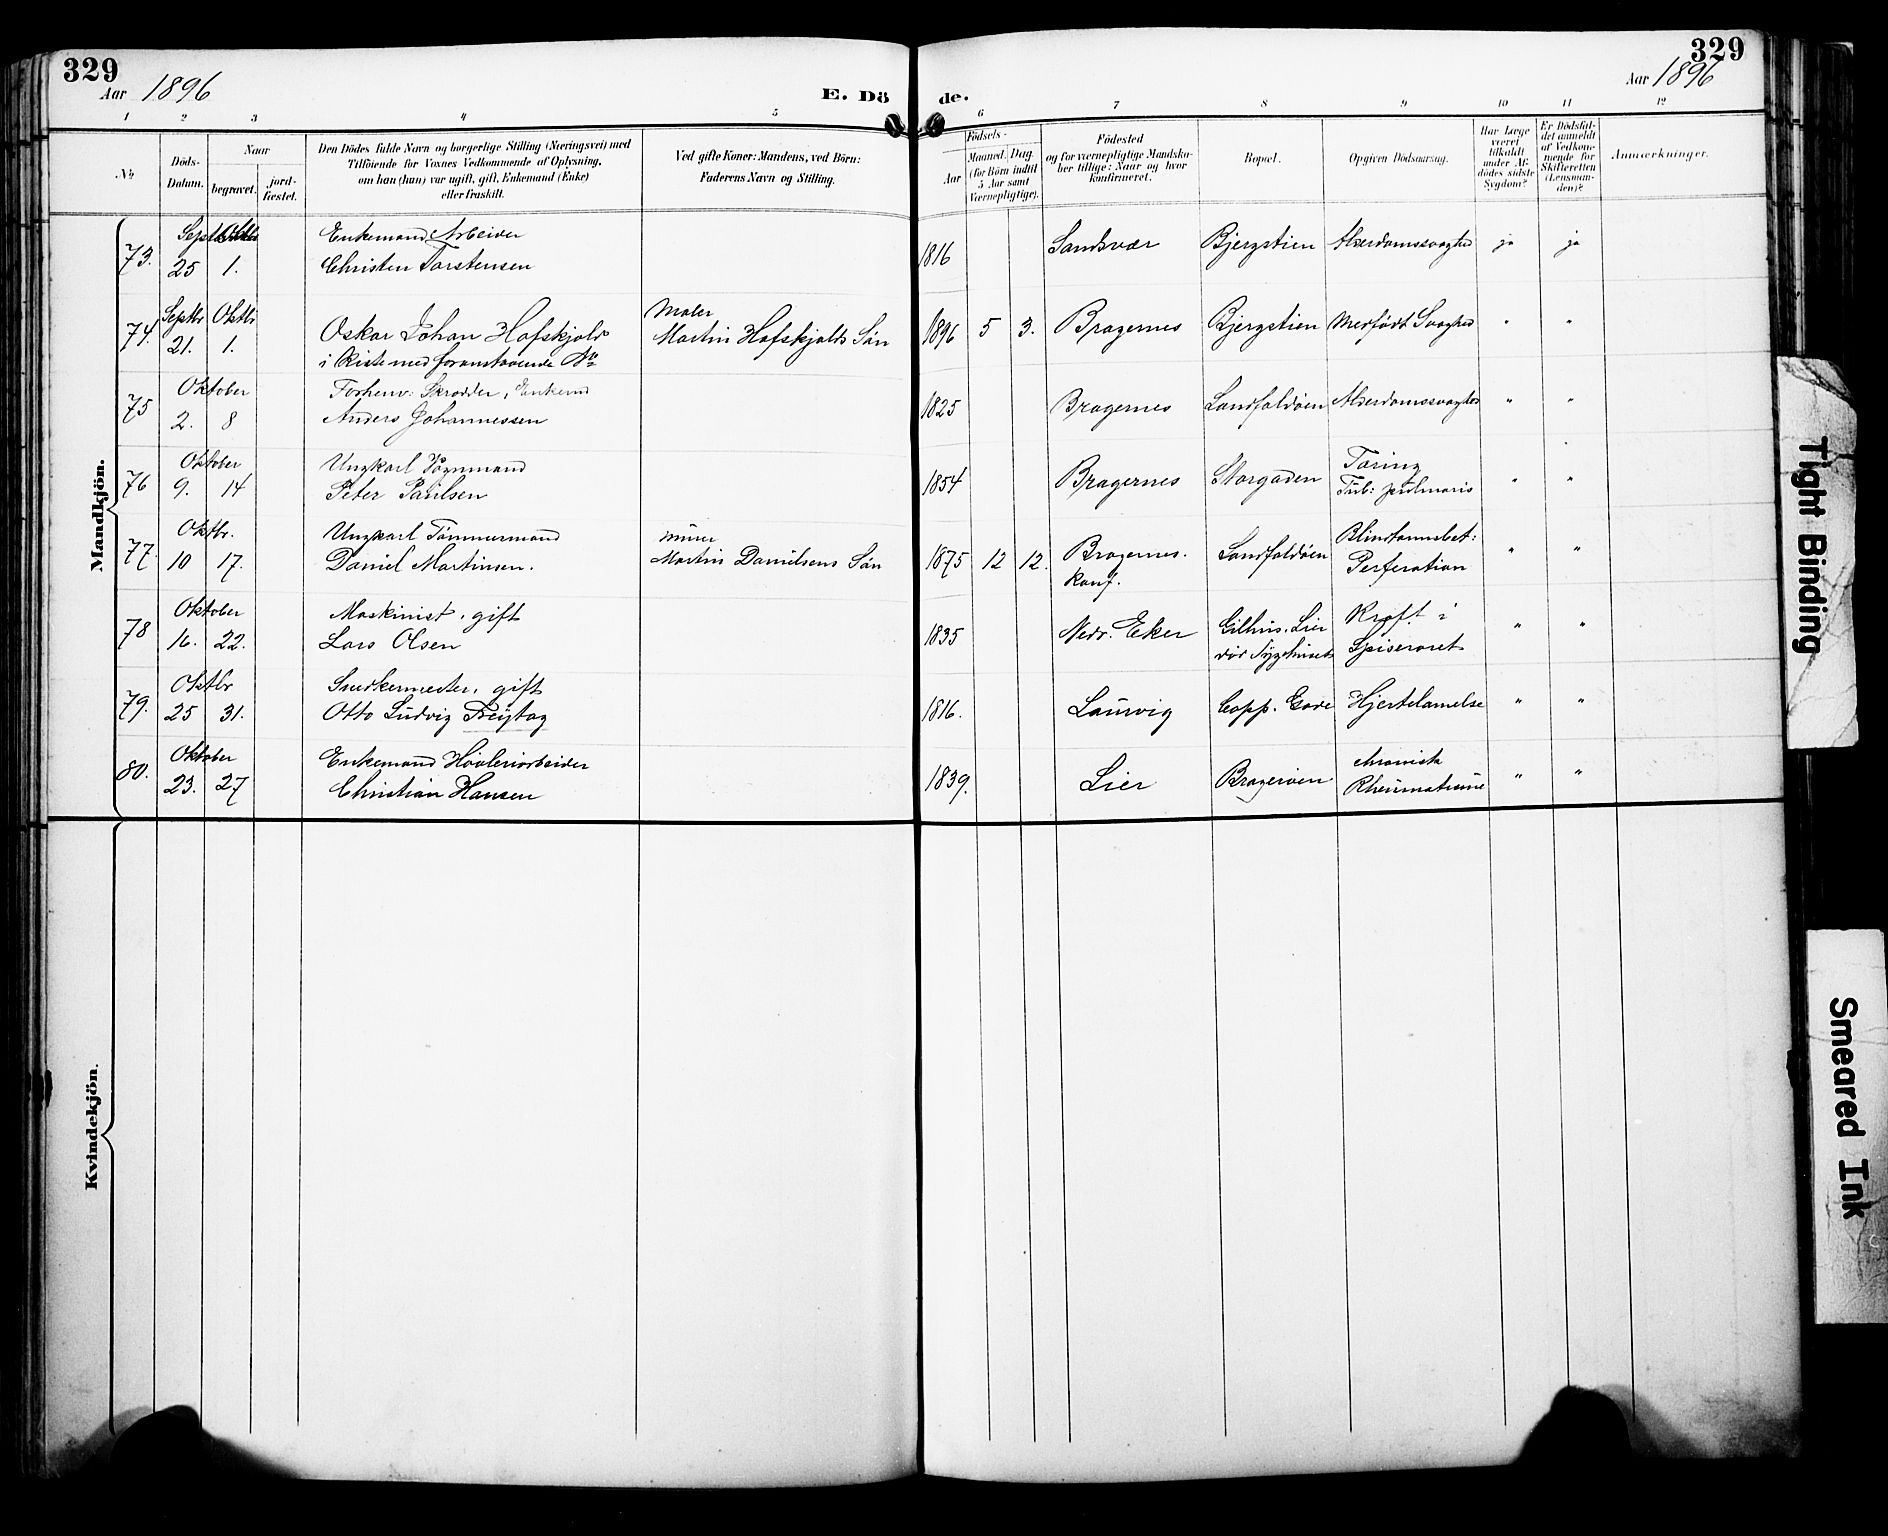 329
Aar 1896
E. Dö
de.
329
Aar 1896
1 2 3 4 5 6 7 8 9 10 11 12
No
Döds-
Datum.
Naar
begravet.
jord-
fæstet.
Den Dödes fulde Navn og borgerlige Stilling (Næringsvei) med
Tilföiende for Voxnes Vedkommende af Oplysning,
om han (hun) var ugift, gift, Enkemand (Enke)
eller fraskilt.
Ved gifte Koner: Mandens, ved Börn:
Faderens Navn og Stilling.
Födsels-
Aar
Maaned. Dag.
(for Börn indtil
5 Aar samt
Værnepligtige).
Födested
og for værnepligtige Mandska-
ber tillige: Naar og hvor
konfirmeret.
Bopæl.
Opgiven Dödsaarsag.
Har Læge
været
tilkaldt
under Af-
dödes sidste
Sygdom?
Er Dödsfal-
det anmeldt
af Vedkom-
mende for
Skifteretten
(Lensman-
den)?
Anmærkninger.
Mandkjön.
73. Septbr 25 Oktbr 1. Enkemand Arbeider
Christen Torstensen 1816 Sandsvær Bjergstien Alderdomssvaghed ja ja
74. Septbr 21. Oktbr 1. Oskar Johan Hofskjold
i Kiste med foranstaaende No
Maler
Martin Hofskjolds Søn 1896 5 3. Bragernes Bjergstien Medfødt Svaghed " "
75 Oktober 2. 8 Forhenv: Skrædder, Enkemd
Anders Johannessen 1825 Bragernes Landfaldøen Alderdomssvaghed " "
76 Oktober 9. 14 Ungkarl Vognmand
Peter Paulsen 1854 Bragernes Storgaden Tæring
Tub: pulmonis " "
77. Oktbr. 10 17. Ungkarl Tømmermand
Daniel Martinsen.
Murer
Martin Danielsens Søn 1875 12 12. Bragernes.
Konf. Landfaldøen Blindtarmsbet:
Perforation " "
78 Oktober 16. 22. Maskinist, gift
Lars Olsen 1835 Nedr. Eker Gilhus, Lier
død Sygehuset Kræft i
Spiserøret " "
79. Oktbr 25 31. Snedkermester, gift
Otto Ludvig Freytag 1816. Laurvig Copp. Gade Hjertelamelse " "
80. Oktober 23. 27 Enkemand Høvleriarbeider
Christian Hansen 1839. Lier Bragerøen chronisk
Rheumatisme " "
Kvindekjön.
Tight Binding
Smeared Ink